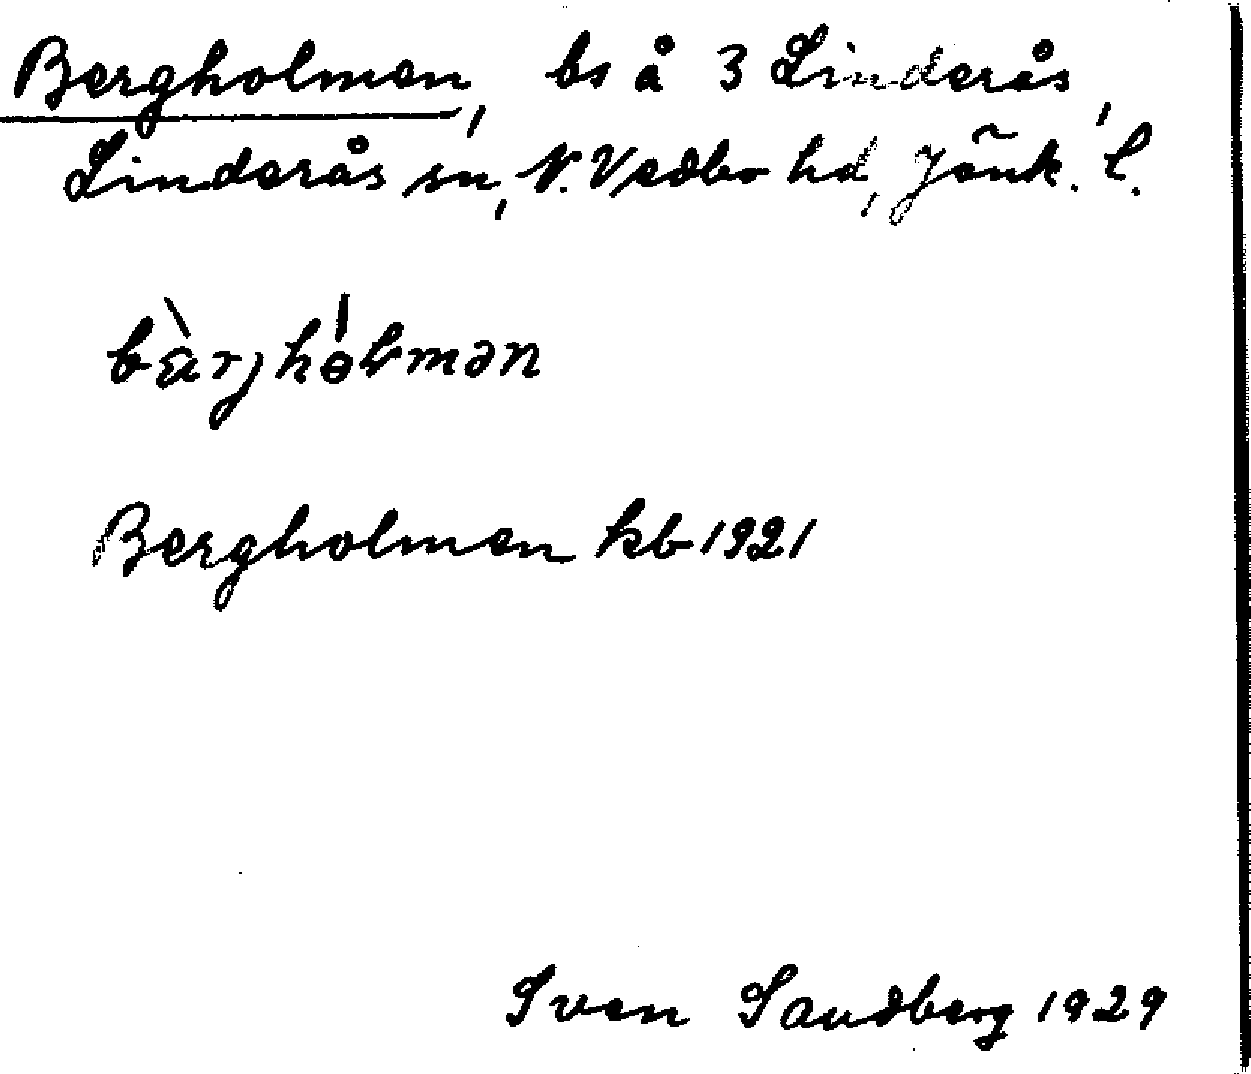 Bergholmen, bs å 3 Linderås,
Linderås sn, N. Vedbo hd, Jönk. l.
bàrjhɵ́lmən
Bergholmen kb 1921
Sven Sandberg 1929